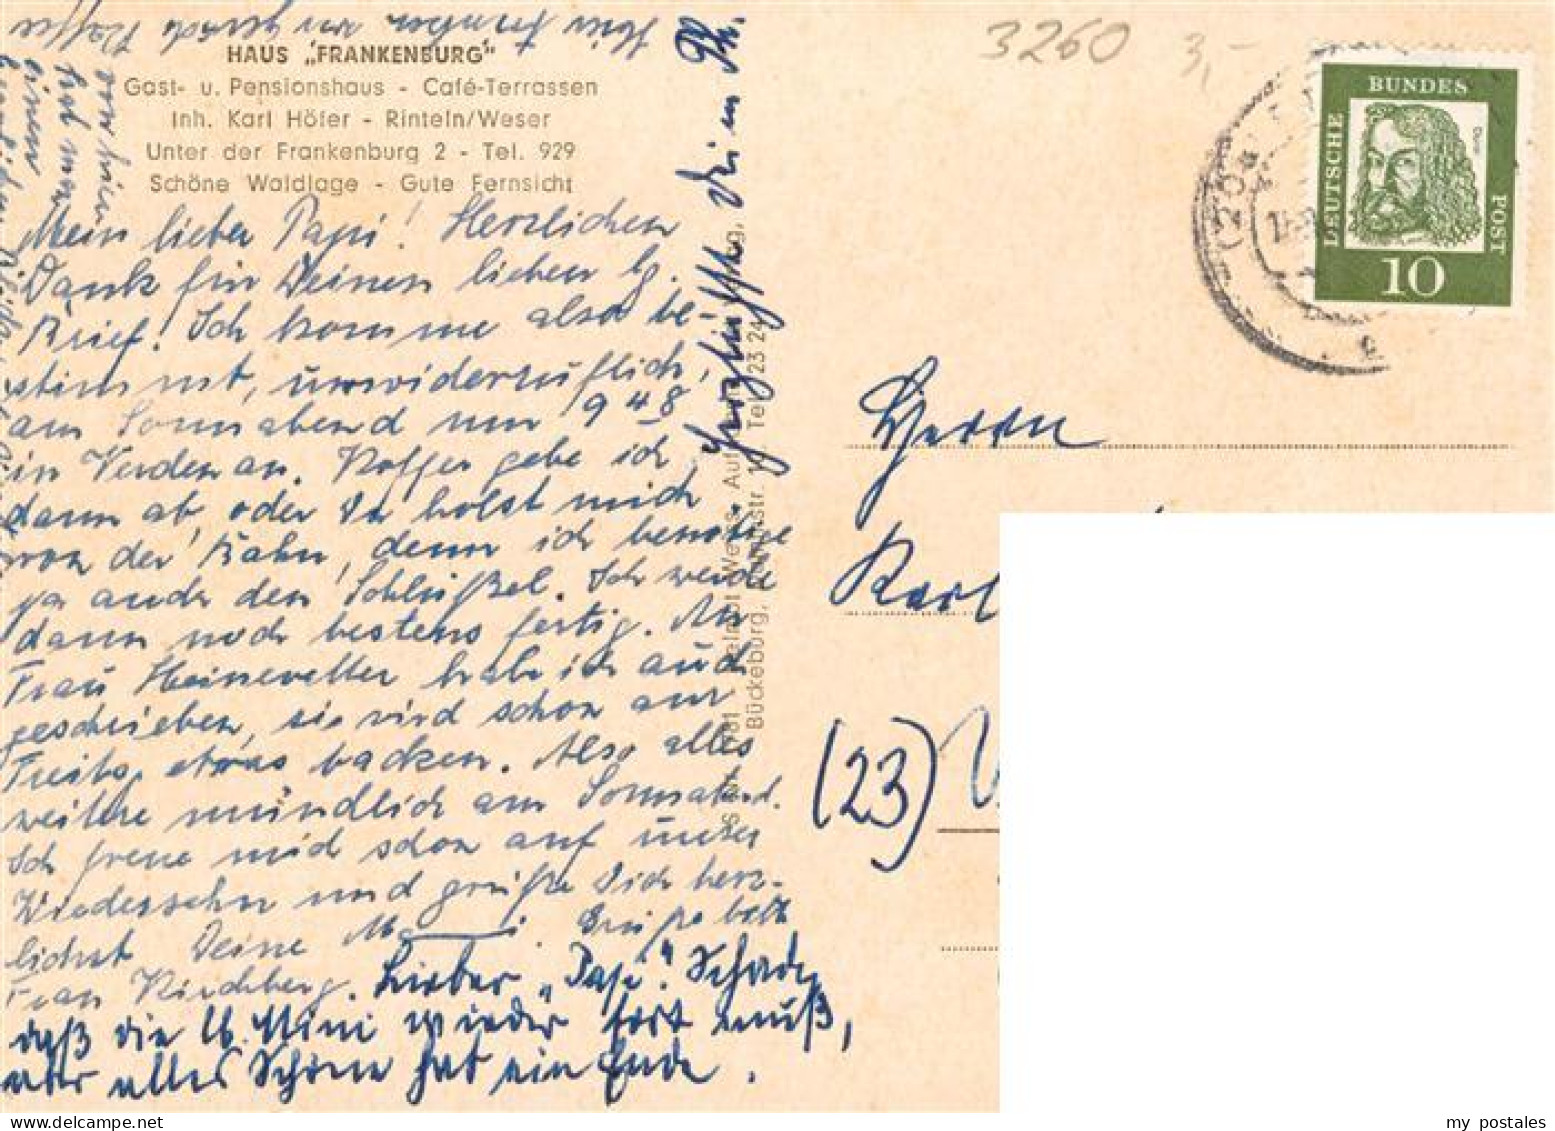 Hier trinken wir gerade Kaffee
HAUS „FRANKENBURG"
Gast- u. Pensionshaus - Café-Terrassen
Inh. Karl Höfer - Rinteln/Weser
Unter der Frankenburg 2 - Tel. 929
Schöne Waldlage - Gute Fernsicht
von hier
hat man
einen
Mein lieber Papi! Herzlichen
Dank für Deinen lieben lg.
Brief! Ich komme also be-
stimmt, unwiderruflich,
am Sonnabend um 9 48
in Verden an. Koffer gebe ich
dann ab, oder Du holst mich
von der Bahn, denn ich benötige
ja auch den Schlüßel. Ich werde
dann noch bestens fertig. An
Frau Heinevetter hab ich auch
geschrieben, sie wird schon am
Freitg. etwas backen. Also alles
weitere mündlich am Sonnabend.
Ich freue mich schon auf unser
Wiedersehn und grüße Dich herz-
lichst Deine M i. Grüße bitte
Frau Kirchberg. Lieber „Papi"! Schade,
daß die lb. Mini wieder fort muß,
aber alles Schöne hat ein Ende.
Herzlichst
Bückeburg,
Tel. 23 24
3260
3,-
DEUTSCHE
BUNDES
POST
Dürer
10
Herrn
Karl
(23) V
my postales